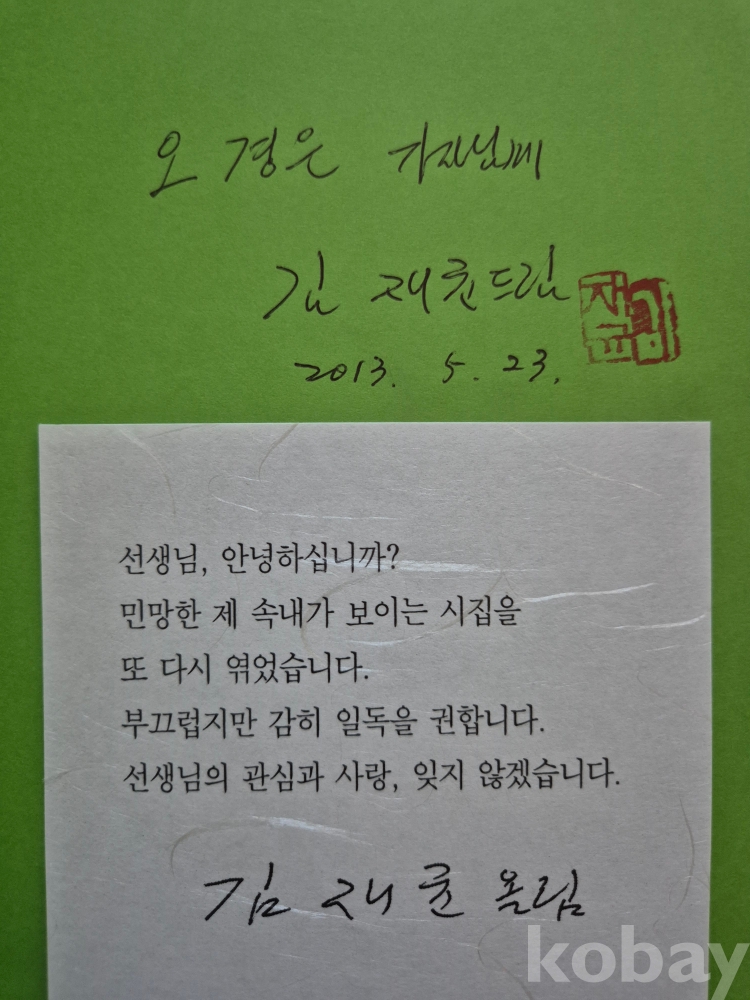 오 경은 기자님께
김 재균드림
2013. 5. 23.
선생님, 안녕하십니까?
민망한 제 속내가 보이는 시집을
또 다시 엮었습니다.
부끄럽지만 감히 일독을 권합니다.
선생님의 관심과 사랑, 잊지 않겠습니다.
김 재균 올림
kobay